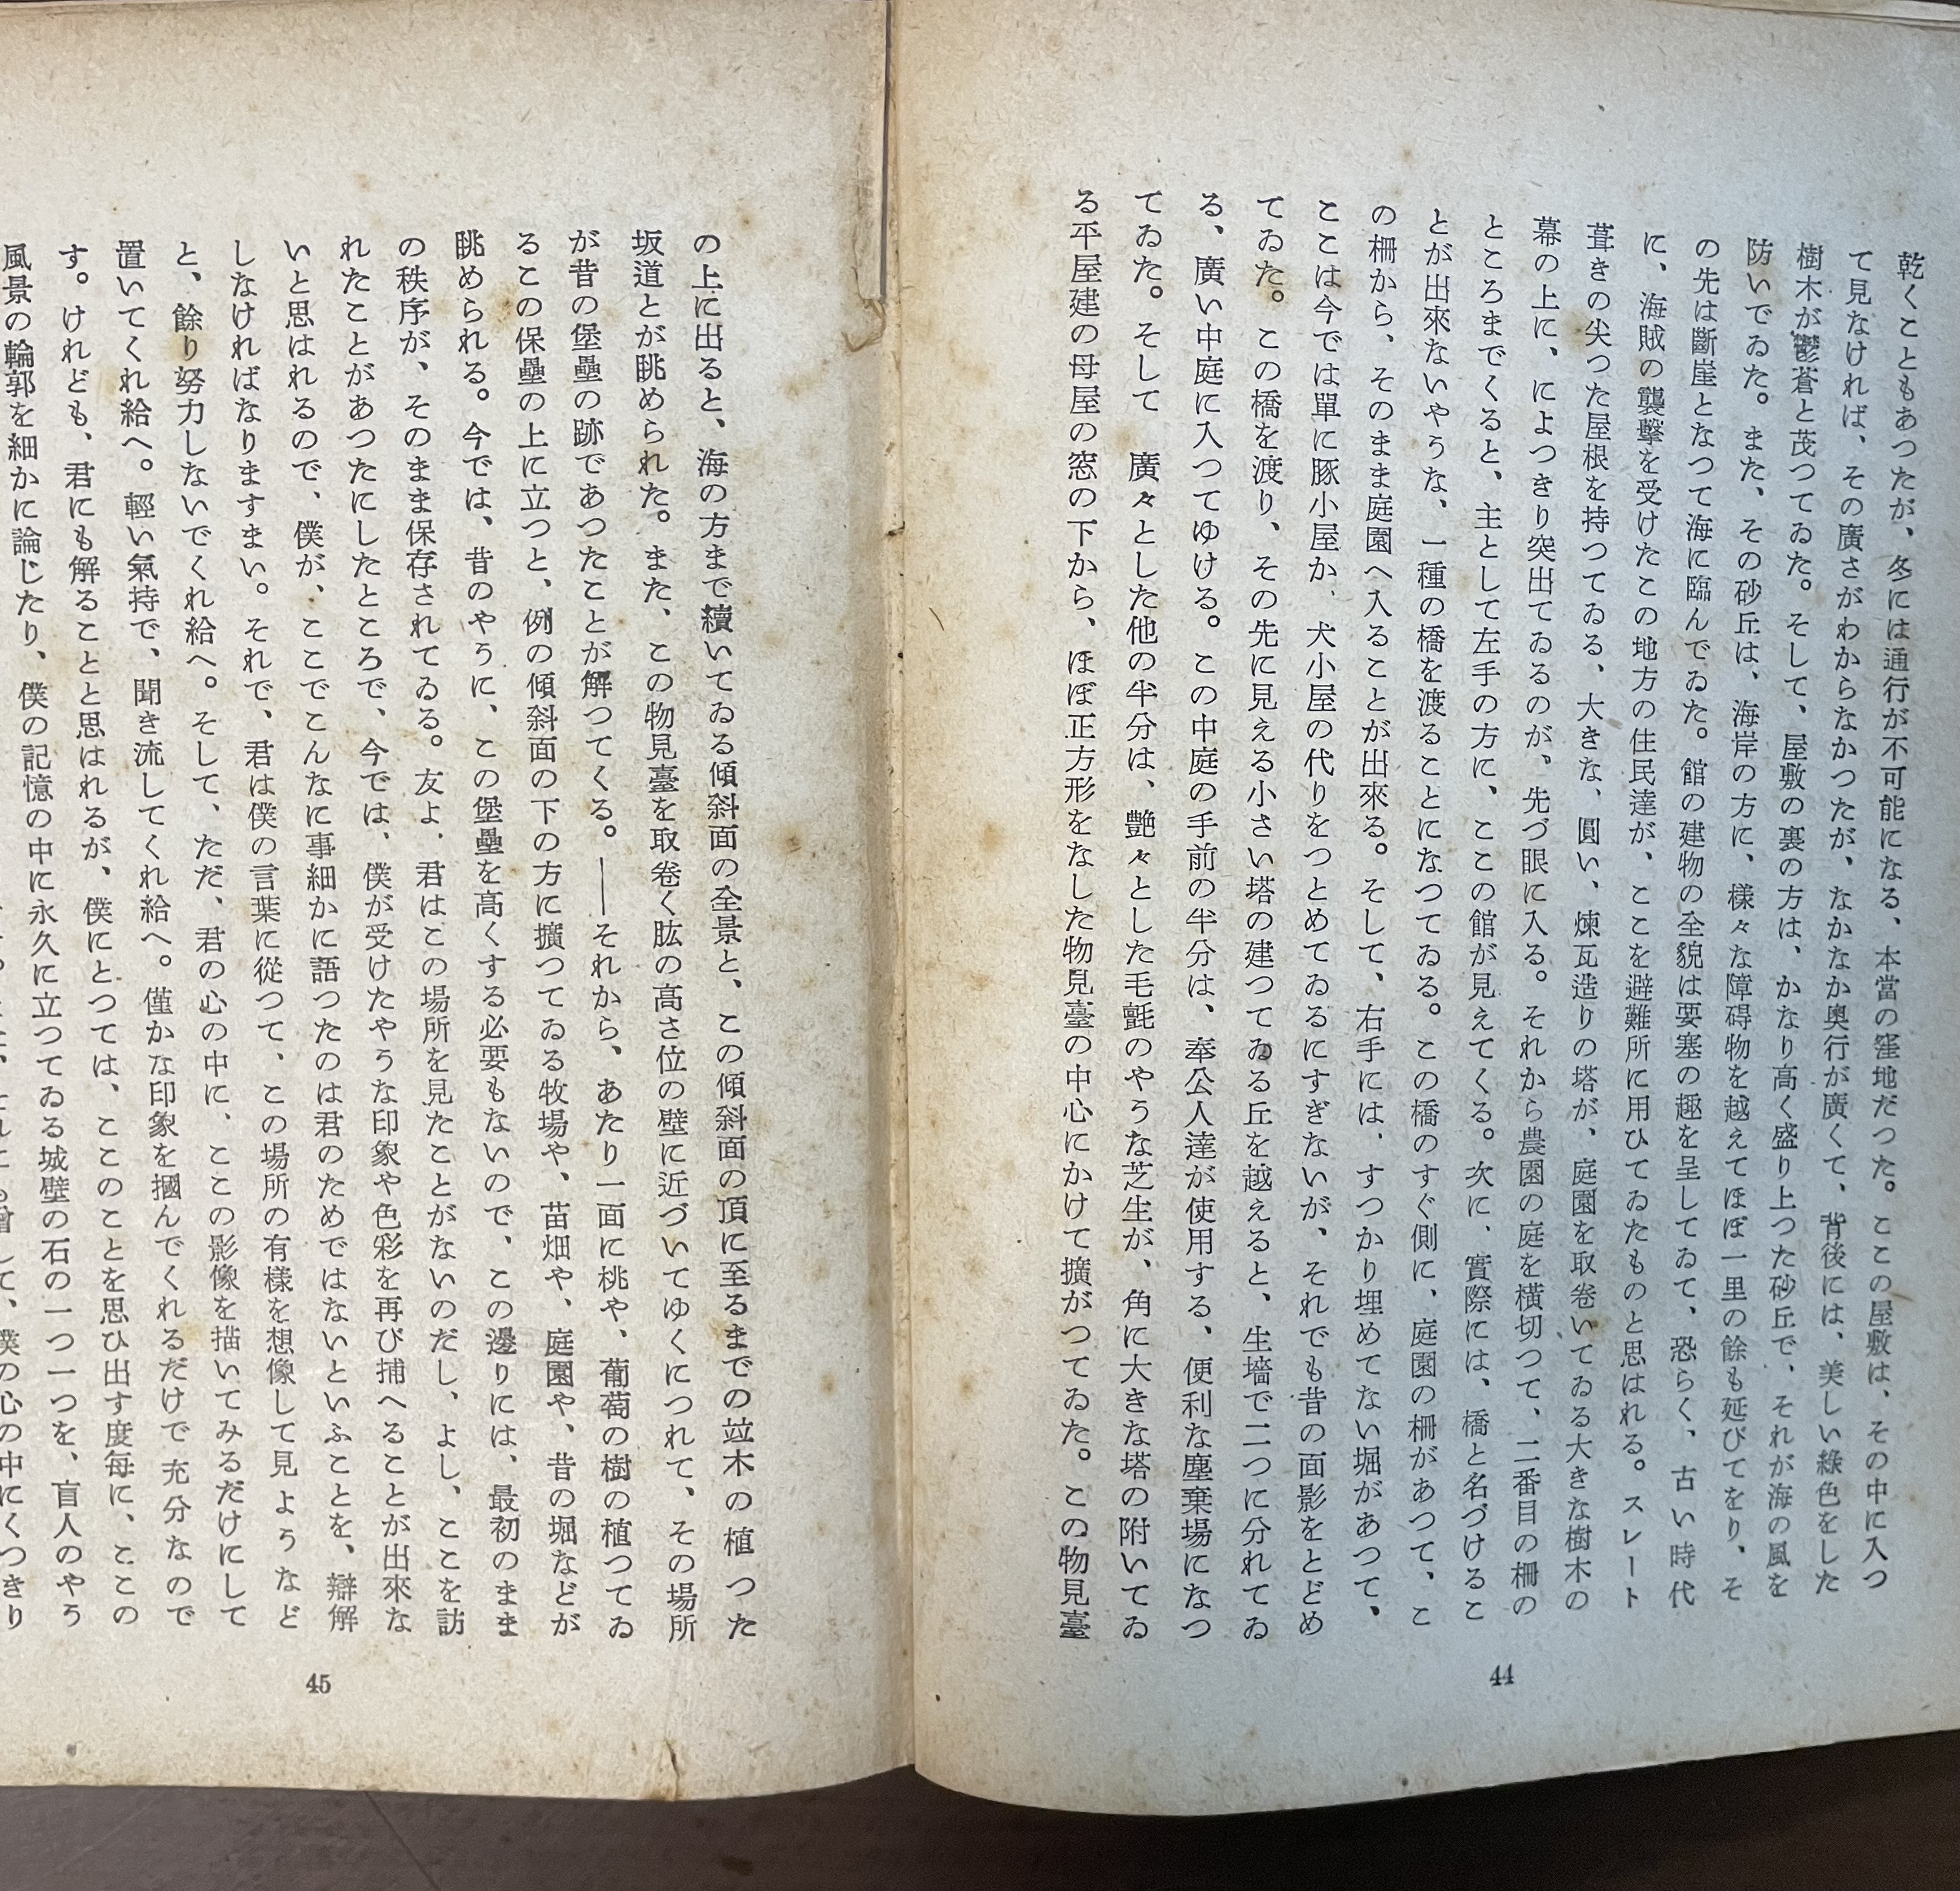 乾くこともあつたが、冬には通行が不可能になる、本當の窪地だつた。ここの屋敷は、その中に入つ
て見なければ、その廣さがわからなかつたが、なかなか奥行が廣くて、背後には、美しい綠色をした
樹木が鬱蒼と茂つてゐた。そして、屋敷の裏の方は、かなり高く盛り上つた砂丘で、それが海の風を
防いでゐた。また、その砂丘は、海岸の方に、様々な障碍物を越えてほぼ一里の餘も延びてをり、そ
の先は斷崖となつて海に臨んでゐた。館の建物の全貌は要塞の趣を呈してゐて、恐らく、古い時代
に、海賊の襲擊を受けたこの地方の住民達が、ここを避難所に用ひてゐたものと思はれる。スレート
葺きの尖つた屋根を持つてゐる、大きな、圓い、煉瓦造りの塔が、庭園を取卷いてゐる大きな樹木の
幕の上に、によつきり突出てゐるのが、先づ眼に入る。それから農園の庭を横切つて、二番目の柵の
ところまでくると、主として左手の方に、ここの館が見えてくる。次に、實際には、橋と名づけるこ
とが出來ないやうな、一種の橋を渡ることになつてゐる。この橋のすぐ側に、庭園の柵があつて、こ
の柵から、そのまま庭園へ入ることが出來る。そして、右手には、すつかり埋めてない堀があつて、
ここは今では單に豚小屋か、犬小屋の代りをつとめてゐるにすぎないが、それでも昔の面影をとどめ
てゐた。この橋を渡り、その先に見える小さい塔の建つてゐる丘を越えると、生墻で二つに分れてゐ
る、廣い中庭に入つてゆける。この中庭の手前の半分は、奉公人達が使用する、便利な塵棄場になつ
てゐた。そして 廣々とした他の半分は、艶々とした毛氈のやうな芝生が、角に大きな塔の附いてゐ
る平屋建の母屋の窓の下から、ほぼ正方形をなした物見臺の中心にかけて擴がつてゐた。この物見臺
44
の上に出ると、海の方まで續いてゐる傾斜面の全景と、この傾斜面の頂に至るまでの竝木の植つた
坂道とが眺められた。また、この物見臺を取卷く肱の高さ位の壁に近づいてゆくにつれて、その場所
が昔の堡壘の跡であつたことが解つてくる。――それから、あたり一面に桃や、葡萄の樹の植つてゐ
るこの保壘の上に立つと、例の傾斜面の下の方に擴つてゐる牧場や、苗畑や、庭園や、昔の堀などが
眺められる。今では、昔のやうに、この堡壘を高くする必要もないので、この邊りには、最初のまま
の秩序が、そのまま保存されてゐる。友よ、君はこの場所を見たことがないのだし、よし、ここを訪
れたことがあつたにしたところで、今では、僕が受けたやうな印象や色彩を再び捕へることが出來な
いと思はれるので、僕が、ここでこんなに事細かに語つたのは君のためではないといふことを、辯解
しなければなりますまい。それで、君は僕の言葉に從つて、この場所の有樣を想像して見ようなど
と、餘り努力しないでくれ給へ。そして、ただ、君の心の中に、ここの影像を描いてみるだけにして
置いてくれ給へ。輕い氣持で、聞き流してくれ給へ。僅かな印象を摑んでくれるだけで充分なので
す。けれども、君にも解ることと思はれるが、僕にとつては、ここのことを思ひ出す度每に、ここの
風景の輪郭を細かに論じたり、僕の記憶の中に永久に立つてゐる城壁の石の一つ一つを、盲人のやう
僕の心の中にくつきり
45